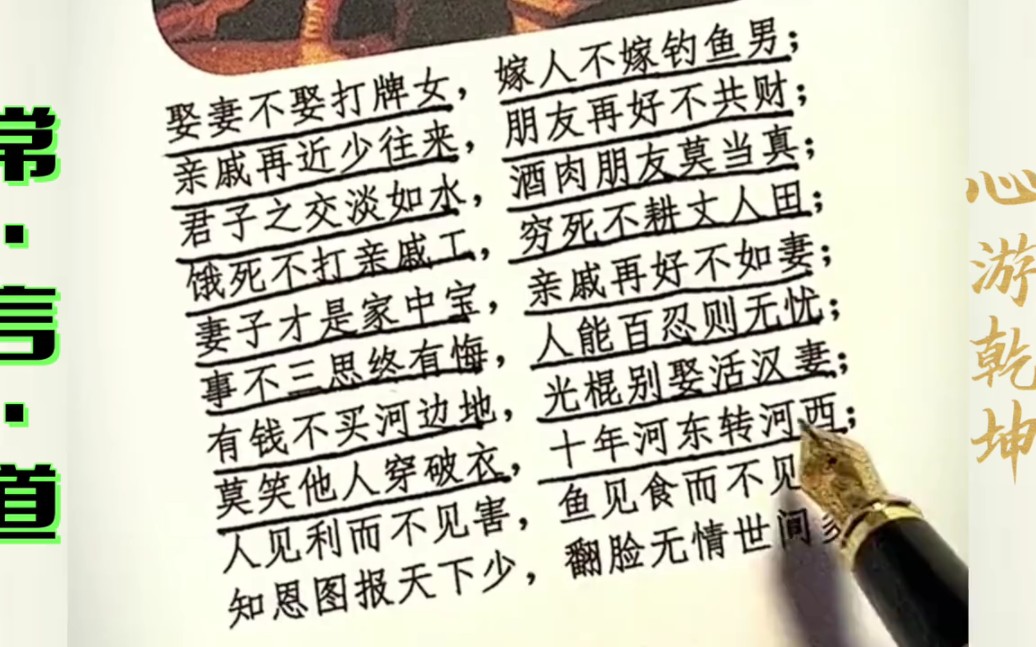 常·言·道
娶妻不娶打牌女，嫁人不嫁钓鱼男；
亲戚再近少往来，朋友再好不共财；
君子之交淡如水，酒肉朋友莫当真；
饿死不打亲戚工，穷死不耕丈人田；
妻子才是家中宝，亲戚再好不如妻；
事不三思终有悔，人能百忍则无忧；
有钱不买河边地，光棍别娶活汉妻；
莫笑他人穿破衣，十年河东转河西；
人见利而不见害，鱼见食而不见
知恩图报天下少，翻脸无情世间
心游乾坤